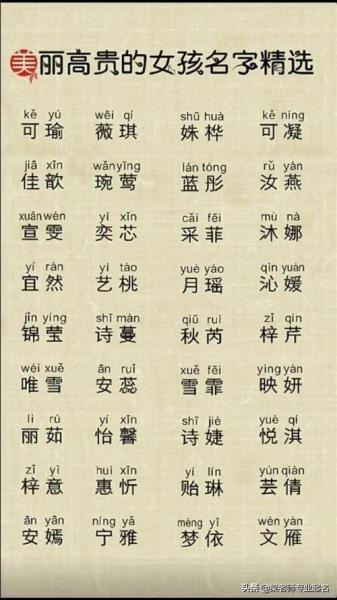 美丽高贵的女孩名字精选
kě yú wēi qí shū huà kě níng
可瑜 薇琪 姝桦 可凝
jiā xīn wǎnyīng lán tóng rǔ yàn
佳歆 琬莺 蓝彤 汝燕
xuānwén yì xīn cǎi fēi mù nà
宣雯 奕芯 采菲 沐娜
yí rán yì táo yuè yáo qìn yuán
宜然 艺桃 月瑶 沁媛
jǐn yíng shī màn qiū ruì zǐ qín
锦莹 诗蔓 秋芮 梓芹
wéi xuě ān ruǐ xuě fēi yìng yán
唯雪 安蕊 雪霏 映妍
lì rú yí xīn shī jié yuè qí
丽茹 怡馨 诗婕 悦淇
zǐ yì huì xīn yí lín yún qiàn
梓意 惠忻 贻琳 芸倩
ān yān níng yǎ mèng yī wén yàn
安嫣 宁雅 梦依 文雁
头条 @梁老师专业起名